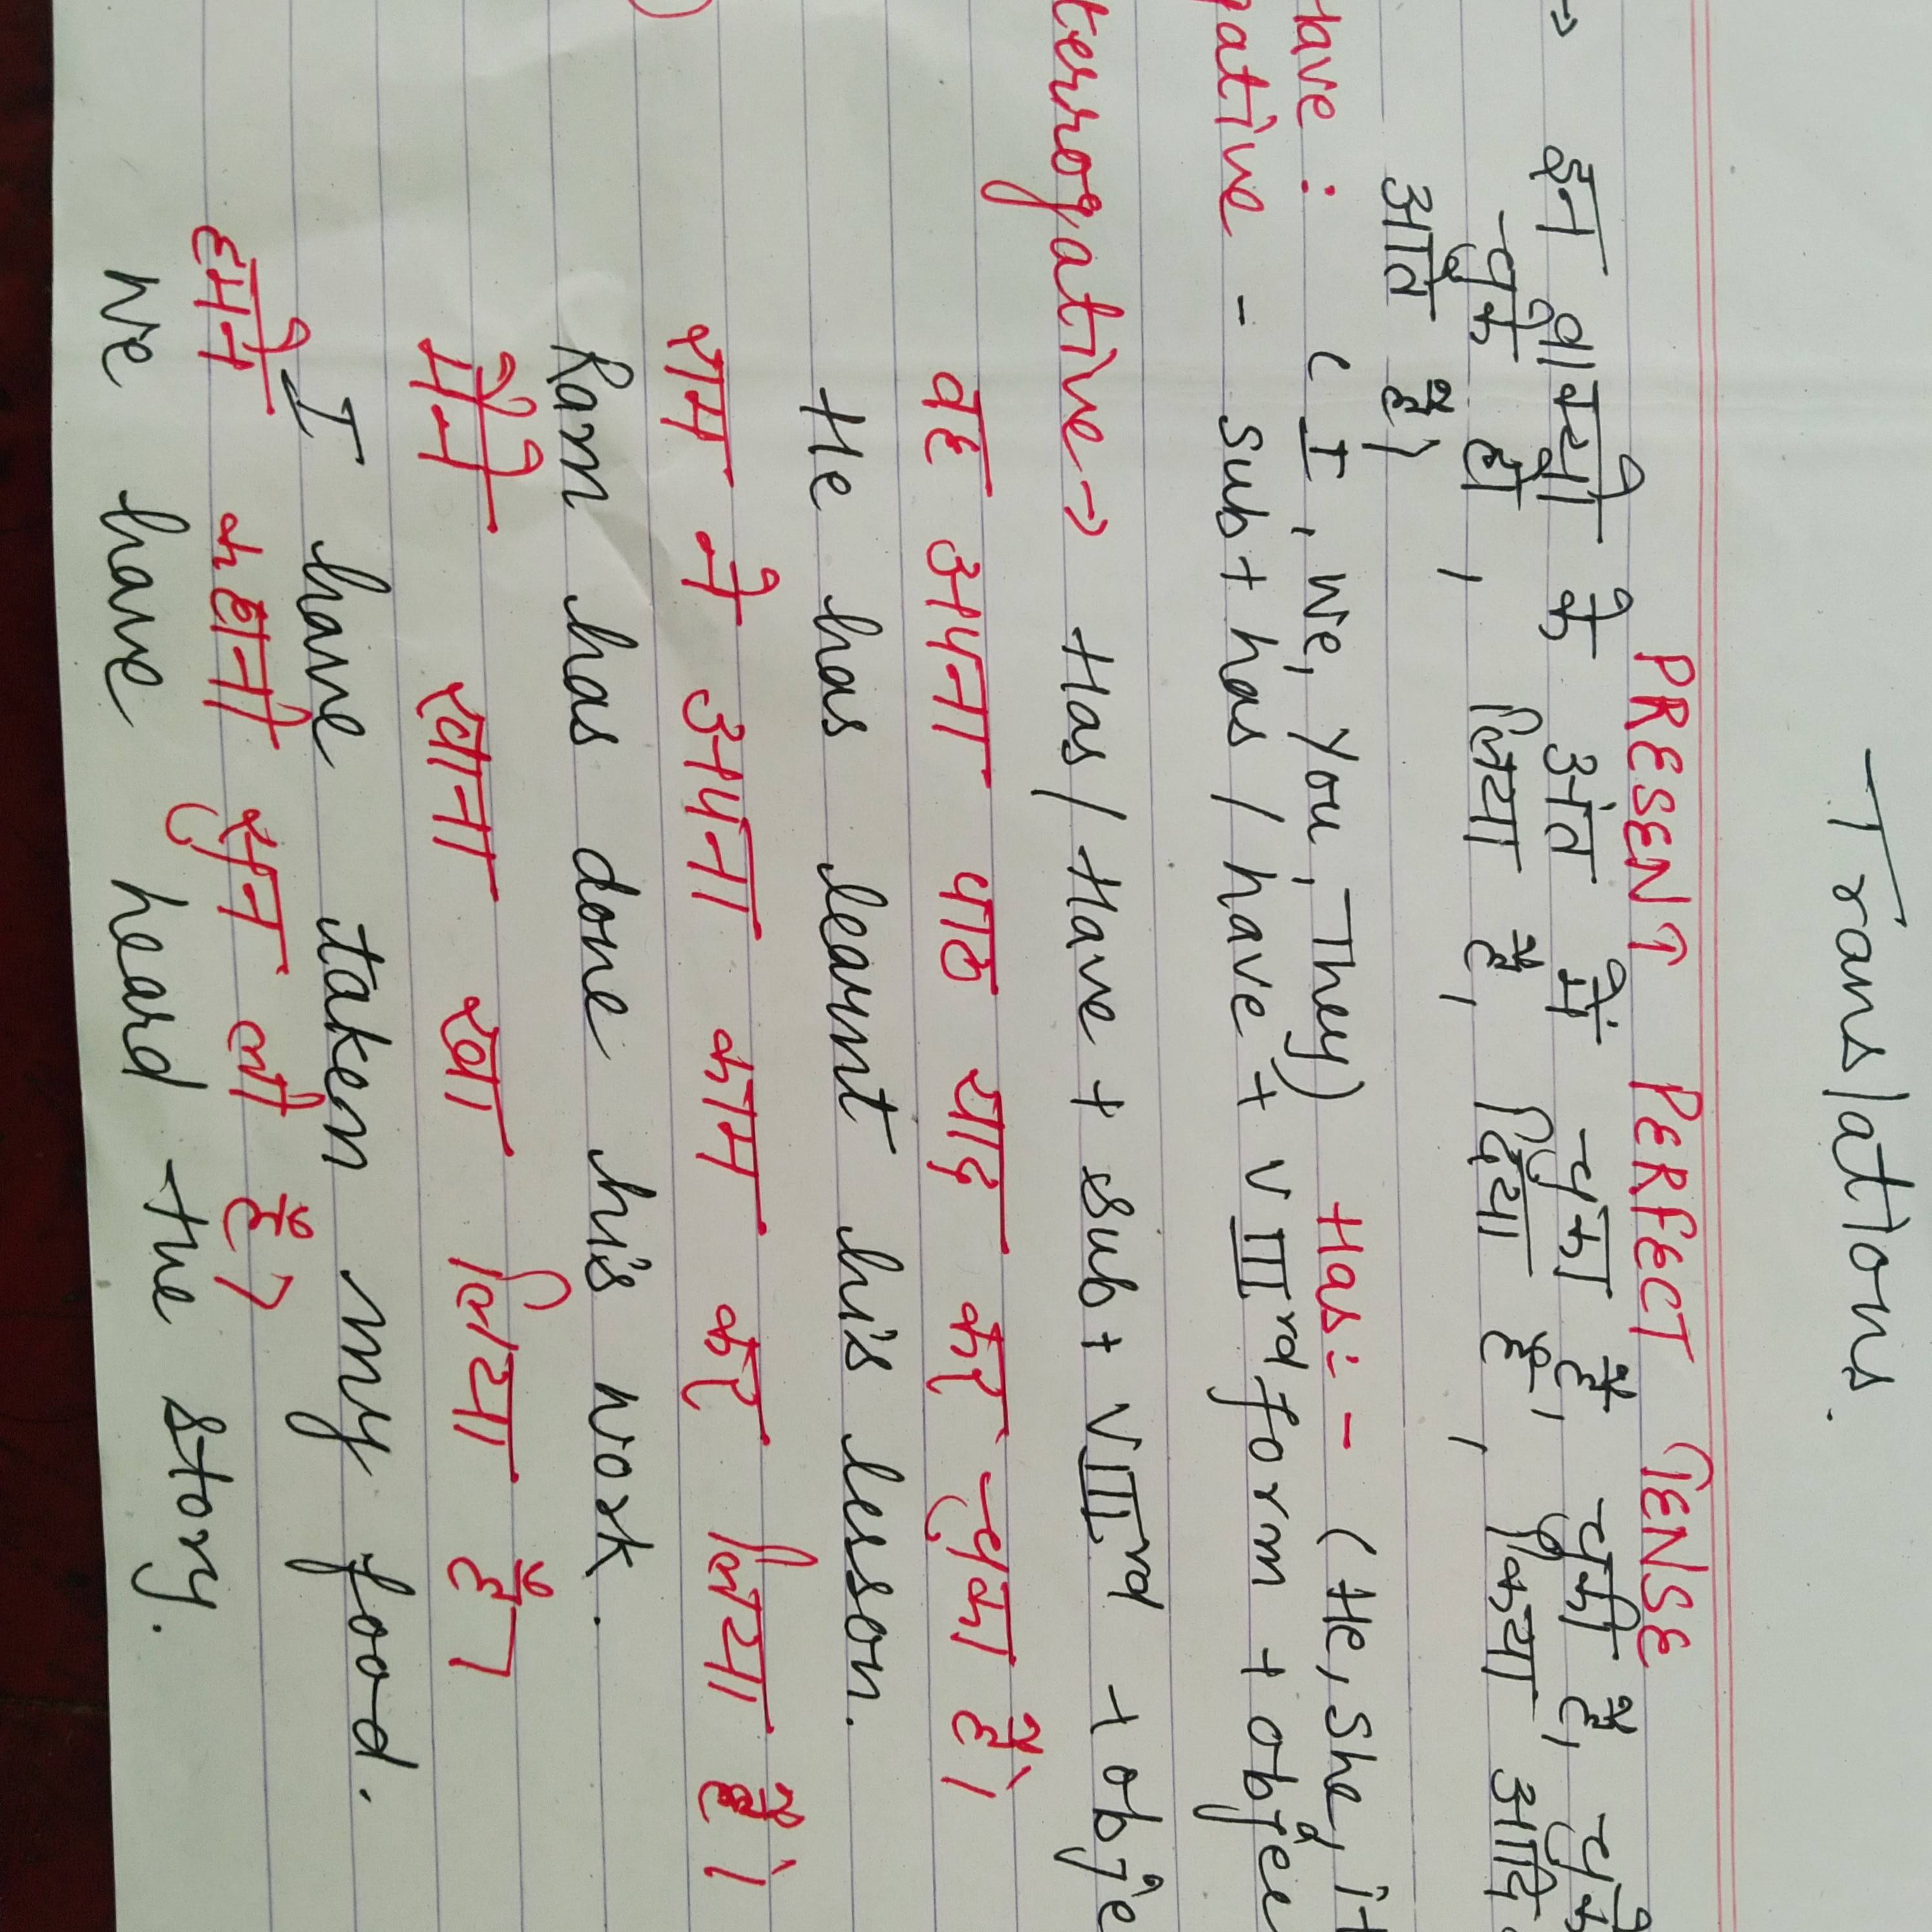 Translations.
PRESENT PERFECT TENSE
→ इन वाक्यो के अंत में चुका है, चुकी है, चुके
चुके हो, लिया है, दिया है, किया आदि
आते है।
Have : (I, We, You, They) Has :- (He, She, it
gative - Sub + has / have + V IIIrd form + objec
terrogative → Has / Have + Sub + V IIIrd + obje
वह अपना पाठ याद कर चुका है।
He has learnt his lesson.
राम ने अपना काम कर लिया है।
Ram has done his work.
मैने खाना खा लिया है।
I have taken my food.
हमने कहानी सुन ली है।
We have heard the story.